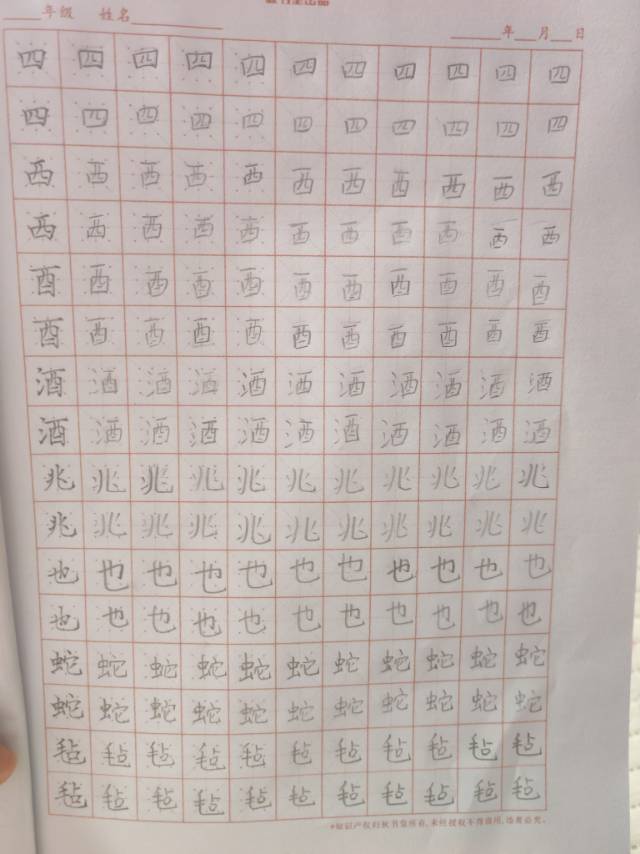 ____年级 姓名________ ______年___月___日
四 四 四 四 四 四 四 四 四 四 四
四 四 四 四 四 四 四 四 四 四 四
西 西 西 西 西 西 西 西 西 西 西
西 西 西 西 西 西 西 西 西 西 西
酉 酉 酉 酉 酉 酉 酉 酉 酉 酉 酉
酉 酉 酉 酉 酉 酉 酉 酉 酉 酉 酉
酒 酒 酒 酒 酒 酒 酒 酒 酒 酒 酒
酒 酒 酒 酒 酒 酒 酒 酒 酒 酒 酒
兆 兆 兆 兆 兆 兆 兆 兆 兆 兆 兆
兆 兆 兆 兆 兆 兆 兆 兆 兆 兆 兆
也 也 也 也 也 也 也 也 也 也 也
也 也 也 也 也 也 也 也 也 也 也
蛇 蛇 蛇 蛇 蛇 蛇 蛇 蛇 蛇 蛇 蛇
蛇 蛇 蛇 蛇 蛇 蛇 蛇 蛇 蛇 蛇 蛇
毡 毡 毡 毡 毡 毡 毡 毡 毡 毡 毡
毡 毡 毡 毡 毡 毡 毡 毡 毡 毡 毡
*知识产权归秋书堂所有,未经授权不得商用,违者必究。